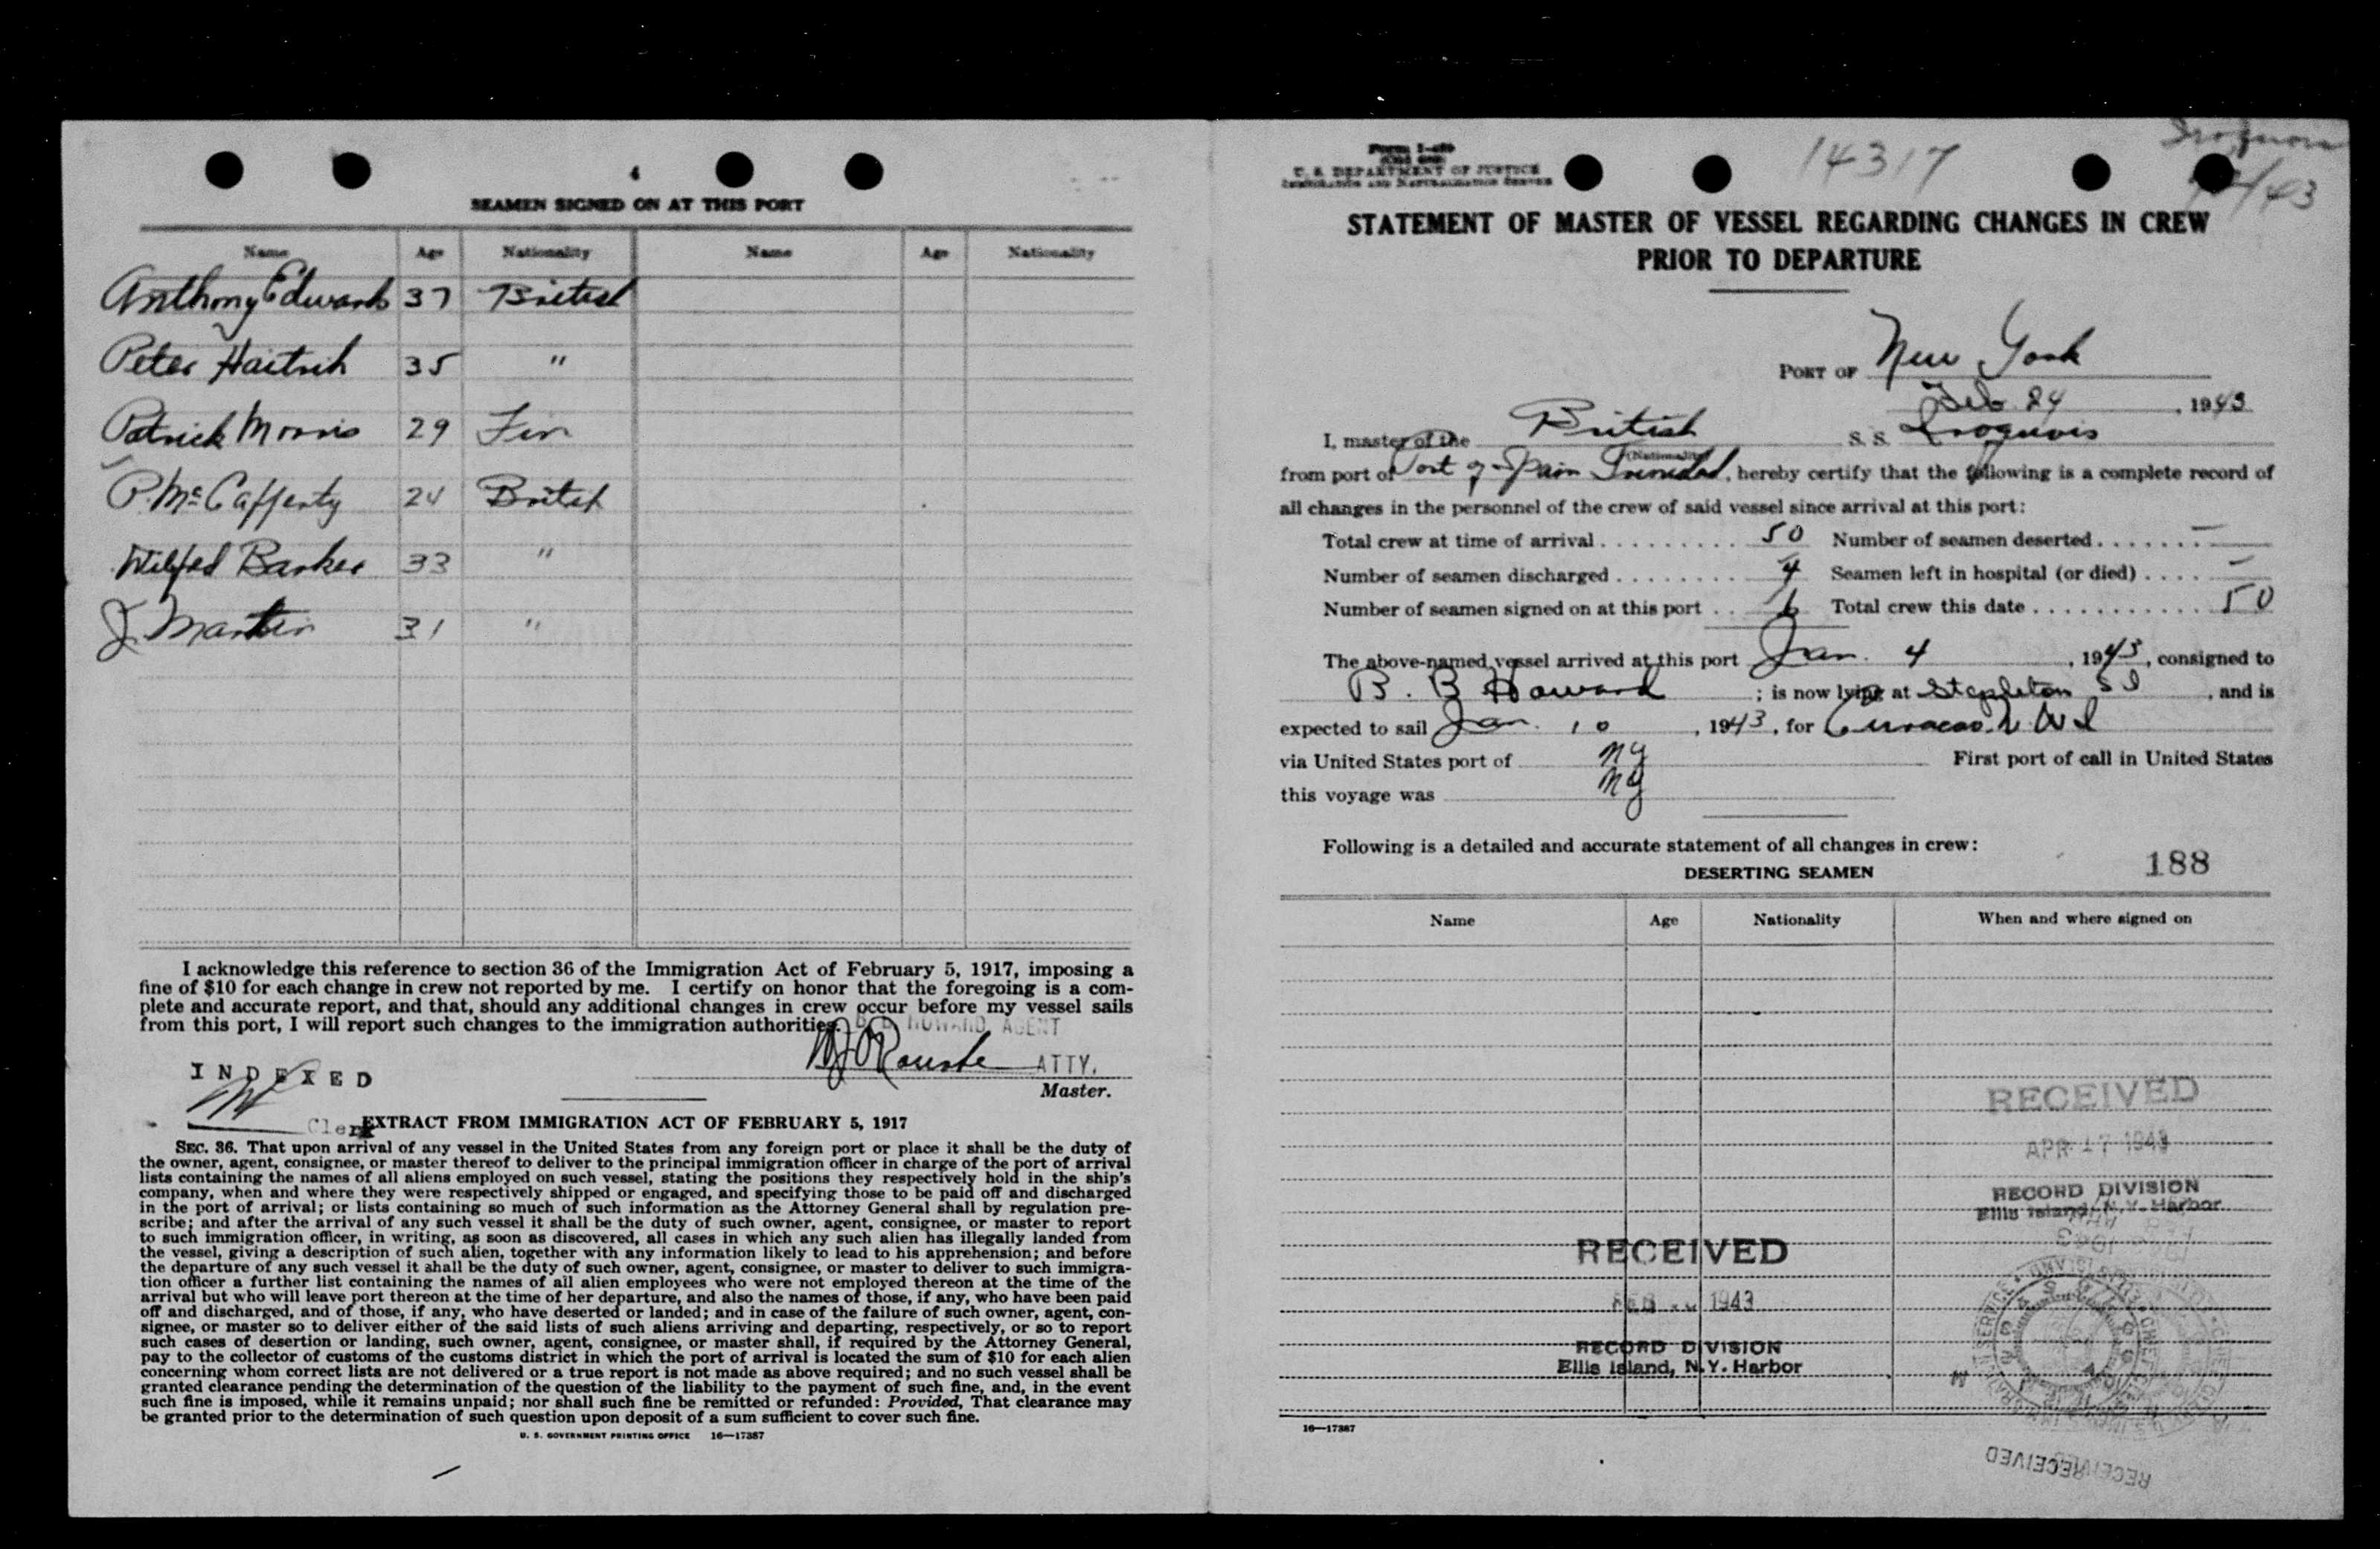 4
SEAMEN SIGNED ON AT THIS PORT
Name Age Nationality Name Age Nationality
Anthony Edwards 37 British
Peter 35 "
Patrick Morris 29 Fin
P. McCafferty 24 British
Wilfred Barker 33 "
J. Martin 31 "
I acknowledge this reference to section 36 of the Immigration Act of February 5, 1917, imposing a
fine of $10 for each change in crew not reported by me. I certify on honor that the foregoing is a com-
plete and accurate report, and that, should any additional changes in crew occur before my vessel sails
from this port, I will report such changes to the immigration authorities.
B B HOWARD AGENT
ATTY.
Master.
INDEXED
Clerk
EXTRACT FROM IMMIGRATION ACT OF FEBRUARY 5, 1917
SEC. 36. That upon arrival of any vessel in the United States from any foreign port or place it shall be the duty of
the owner, agent, consignee, or master thereof to deliver to the principal immigration officer in charge of the port of arrival
lists containing the names of all aliens employed on such vessel, stating the positions they respectively hold in the ship's
company, when and where they were respectively shipped or engaged, and specifying those to be paid off and discharged
in the port of arrival; or lists containing so much of such information as the Attorney General shall by regulation pre-
scribe; and after the arrival of any such vessel it shall be the duty of such owner, agent, consignee, or master to report
to such immigration officer, in writing, as soon as discovered, all cases in which any such alien has illegally landed from
the vessel, giving a description of such alien, together with any information likely to lead to his apprehension; and before
the departure of any such vessel it shall be the duty of such owner, agent, consignee, or master to deliver to such immigra-
tion officer a further list containing the names of all alien employees who were not employed thereon at the time of the
arrival but who will leave port thereon at the time of her departure, and also the names of those, if any, who have been paid
off and discharged, and of those, if any, who have deserted or landed; and in case of the failure of such owner, agent, con-
signee, or master so to deliver either of the said lists of such aliens arriving and departing, respectively, or so to report
such cases of desertion or landing, such owner, agent, consignee, or master shall, if required by the Attorney General,
pay to the collector of customs of the customs district in which the port of arrival is located the sum of $10 for each alien
concerning whom correct lists are not delivered or a true report is not made as above required; and no such vessel shall be
granted clearance pending the determination of the question of the liability to the payment of such fine, and, in the event
such fine is imposed, while it remains unpaid; nor shall such fine be remitted or refunded: Provided, That clearance may
be granted prior to the determination of such question upon deposit of a sum sufficient to cover such fine.
U. S. GOVERNMENT PRINTING OFFICE 16—17387
U. S. DEPARTMENT OF JUSTICE
IMMIGRATION AND NATURALIZATION SERVICE
14317
Iroquois
STATEMENT OF MASTER OF VESSEL REGARDING CHANGES IN CREW
PRIOR TO DEPARTURE
PORT OF New York
Feb 24, 1943
I, master of the British S. S. Iroquois
(Nationality)
from port of Port of Spain Trinidad, hereby certify that the following is a complete record of
all changes in the personnel of the crew of said vessel since arrival at this port:
Total crew at time of arrival . . . . . . . . . . 50 Number of seamen deserted . . . . . . . . —
Number of seamen discharged . . . . . . . . 4 Seamen left in hospital (or died) . . . . —
Number of seamen signed on at this port . . 6 Total crew this date . . . . . . . . . . . . 50
The above-named vessel arrived at this port Jan. 4, 1943, consigned to
B. B Howard; is now lying at Stapleton S I, and is
expected to sail Jan. 10, 1943, for Curacao N W I
via United States port of NY First port of call in United States
this voyage was NY
Following is a detailed and accurate statement of all changes in crew:
188
DESERTING SEAMEN
Name Age Nationality When and where signed on
RECEIVED
APR 17 1943
RECORD DIVISION
Ellis Island, N.Y. Harbor
RECEIVED
FEB 1943
RECORD DIVISION
Ellis Island, N.Y. Harbor
16—17387
RECEIVED
RECEIVED